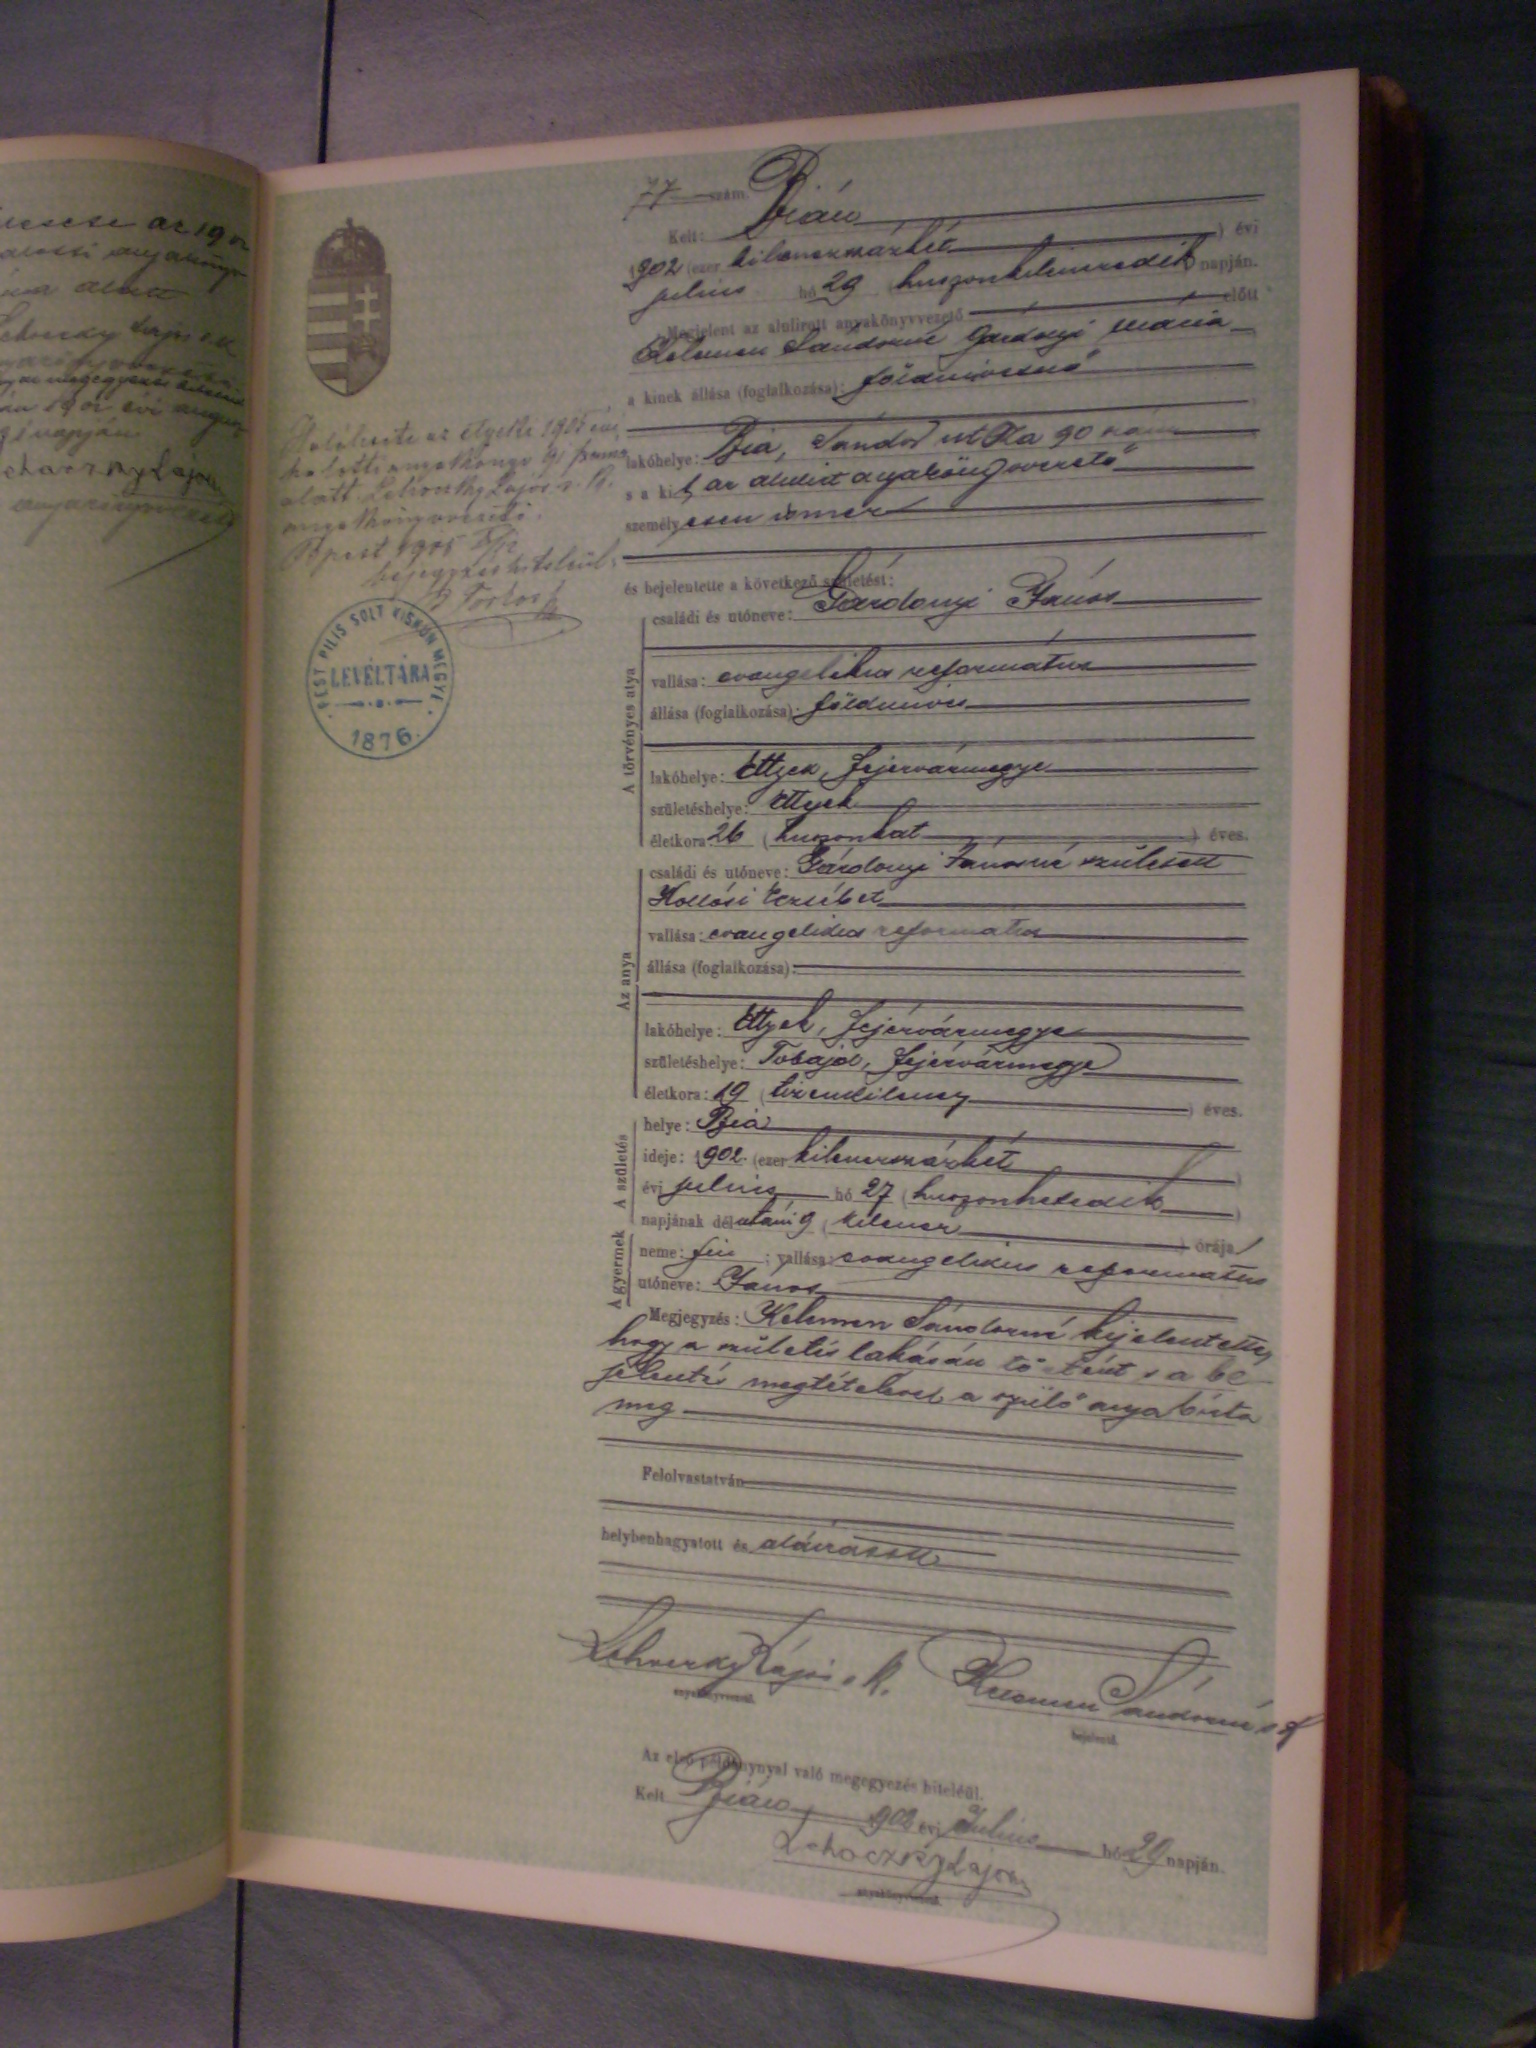 77 szám.
Kelt: Bián
1902 (ezer kilenczszázkét ) évi
julius hó 29 (huszonkilenczedik) napján.
Megjelent az alulirott anyakönyvvezető előtt
Kelemen Sándorné Gárdonyi Mária
a kinek állása (foglalkozása): földmüvesnő
lakóhelye: Bia, Sándor utcza 90 szám
s a kit az alulirt anyakönyvvezető
személyesen ismer
és bejelentette a következő születést:
A törvényes atya
családi és utóneve: Gárdonyi János
vallása: evangelikus református
állása (foglalkozása): földmüves
lakóhelye: Etyek, Fejérvármegye
születéshelye: Etyek
életkora: 26 (huszonhat ) éves.
Az anya
családi és utóneve: Gárdonyi Jánosné született
Kollósi Erzsébet
vallása: evangelikus református
állása (foglalkozása):
lakóhelye: Etyek, Fejérvármegye
születéshelye: Tabajd, Fejérvármegye
életkora: 19 (tizenkilencz ) éves.
A születés
helye: Bia
ideje: 1902. (ezer kilenczszázkét )
évi julius hó 27 (huszonhetedik )
napjának délutáni 9 (kilencz ) órája
A gyermek
neme: fiu ; vallása: evangelikus református
utóneve: János
Megjegyzés: Kelemen Sándorné kijelentette,
hogy a születés lakásán történt s a be
jelentés megtételével a szülő anya bizta
meg
Felolvastatván
helybenhagyatott és aláiratott
Lehoczky Lajos s. k. Kelemen Sándorné s k
anyakönyvvezető. bejelentő.
Az első példánynyal való megegyezés hiteléül.
Kelt Bián, 1902 évi Julius hó 29 napján.
Lehoczky Lajos
anyakönyvvezető.
az etyeki 1905 évi
halotti anyakönyv 91 száma
alatt. Lehoczky Lajos s. k.
anyakönyvvezető.
Bpest 1905
bejegyzés hiteléül
PEST PILIS SOLT KISKUN MEGYE
LEVÉLTÁRA
1876.
az 190
alatt
Lehoczky Lajos s.k.
napján
Lehoczky Lajos
anyakönyvvezető